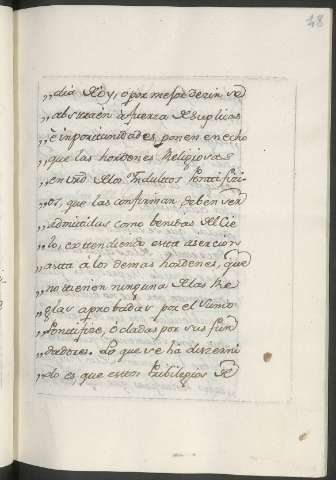 48
„dia de oy, o por mejor dezir, se
„abstraen à fuerza de suplicas
„è inportunidades, ponen en echo
„que las hordenes Religiosas
„en vrd de los Indultos Pontifici
„os, que las confirman deben ser
„admitidas como benidas del Cie
„lo, extendiendo esta aserción
„asta à los demas hordenes, que
„no tienen ninguna de las Re
„glas aprobadas por el Sumo
„Pontifize, ò dadas por sus fun
„dadores. Lo que se ha diszerni
„do es que estos Pribilegios de